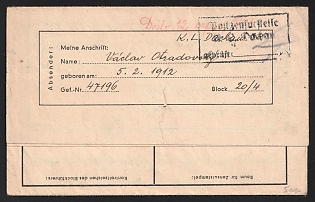 K. L. Dachau
Postzensurstelle
Absender:
Meine Anschrift:
Name: Václav Otradovský
geboren am: 5. 2. 1912
Gef.-Nr. 47196 Block 20/4
Kontrollzeichen des Blockführers:
Raum für Zensurstempel: